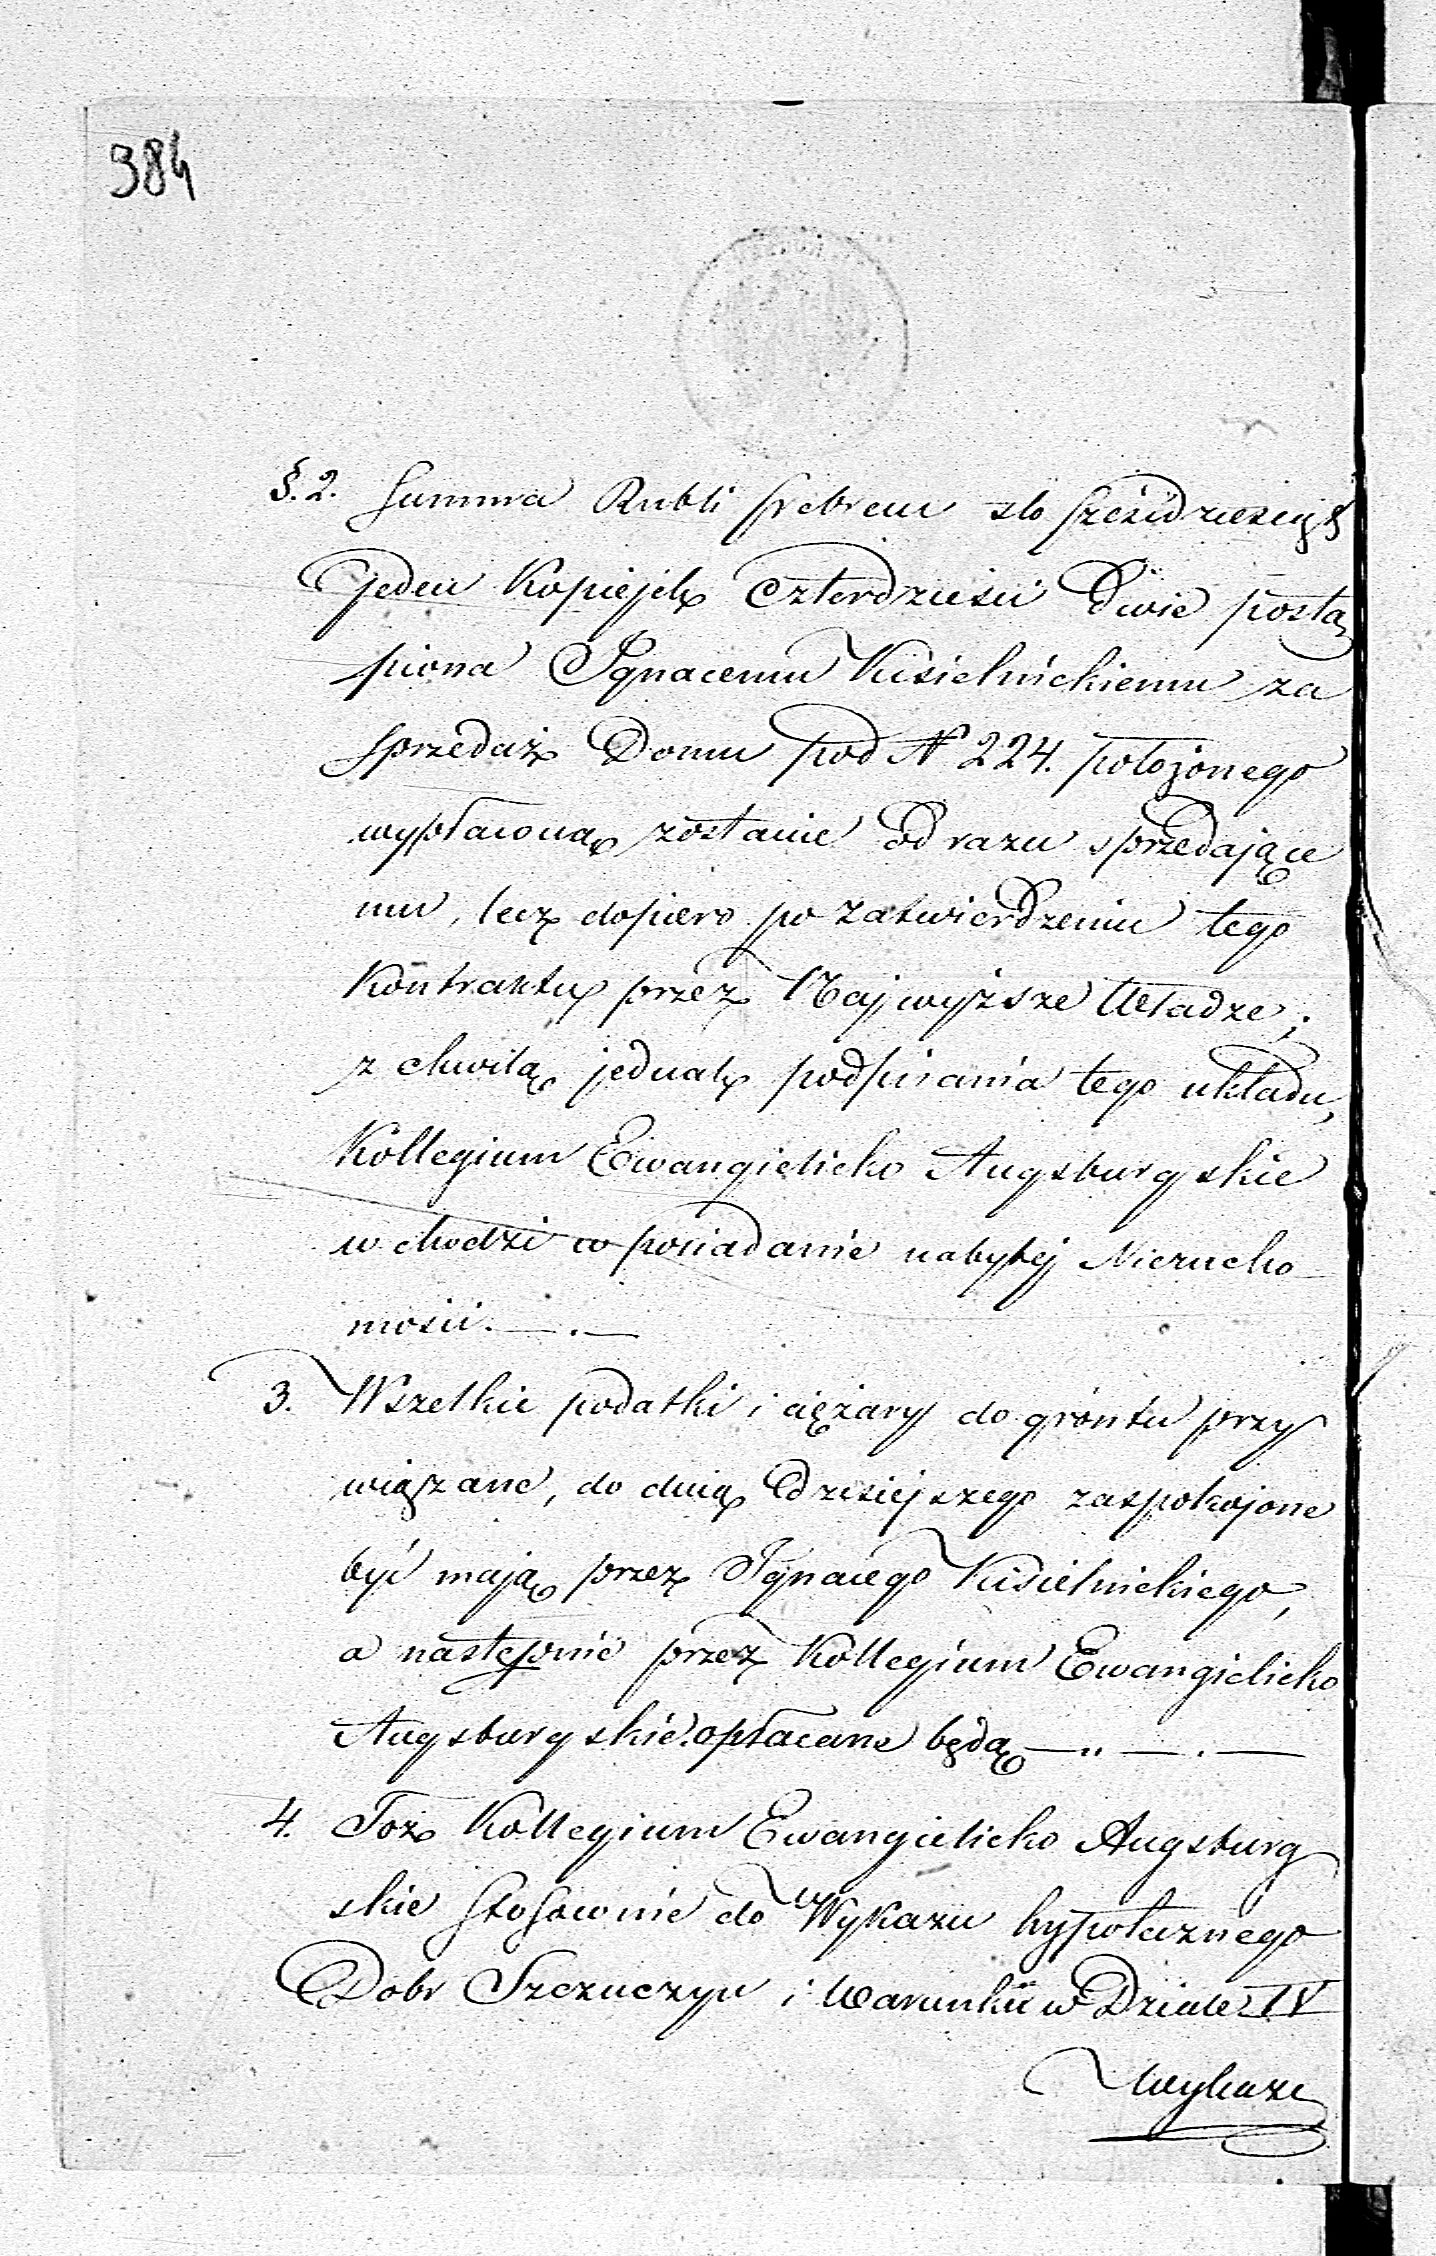 984
§. 2. Summa Rubli srebrem sto sześćdziesiąt
Jeden Kopiejek Czterdzieści Dwie postą
piona Ignacemu Kisielnickiemu za
sprzedaż Domu pod N 224. położonego
wypłaconą zostanie od razu sprzedające
mu, lecz dopiero po zatwierdzeniu tego
Kontraktu przez Najwyższe Władze;
z chwilą jednak podpisania tego układu,
Kollegium Ewangielicko Augsburgskie
wchodzi w posiadanie nabytej Nierucho
mości.
3. Wszelkie podatki i ciężary do grontu przy
wiązane, do dnia dzisiejszego zaspokojone
być mają przez Ignacego Kisielnickiego,
a następnie przez Kollegium Ewangielicko
Augsburgskie opłacane będą
4. Toż Kollegium Ewangielicko Augsburg
skie stosownie do Wykazu hypotecznego
Dobr Szczuczyn i Warunku w Dziale IV
Wykazu